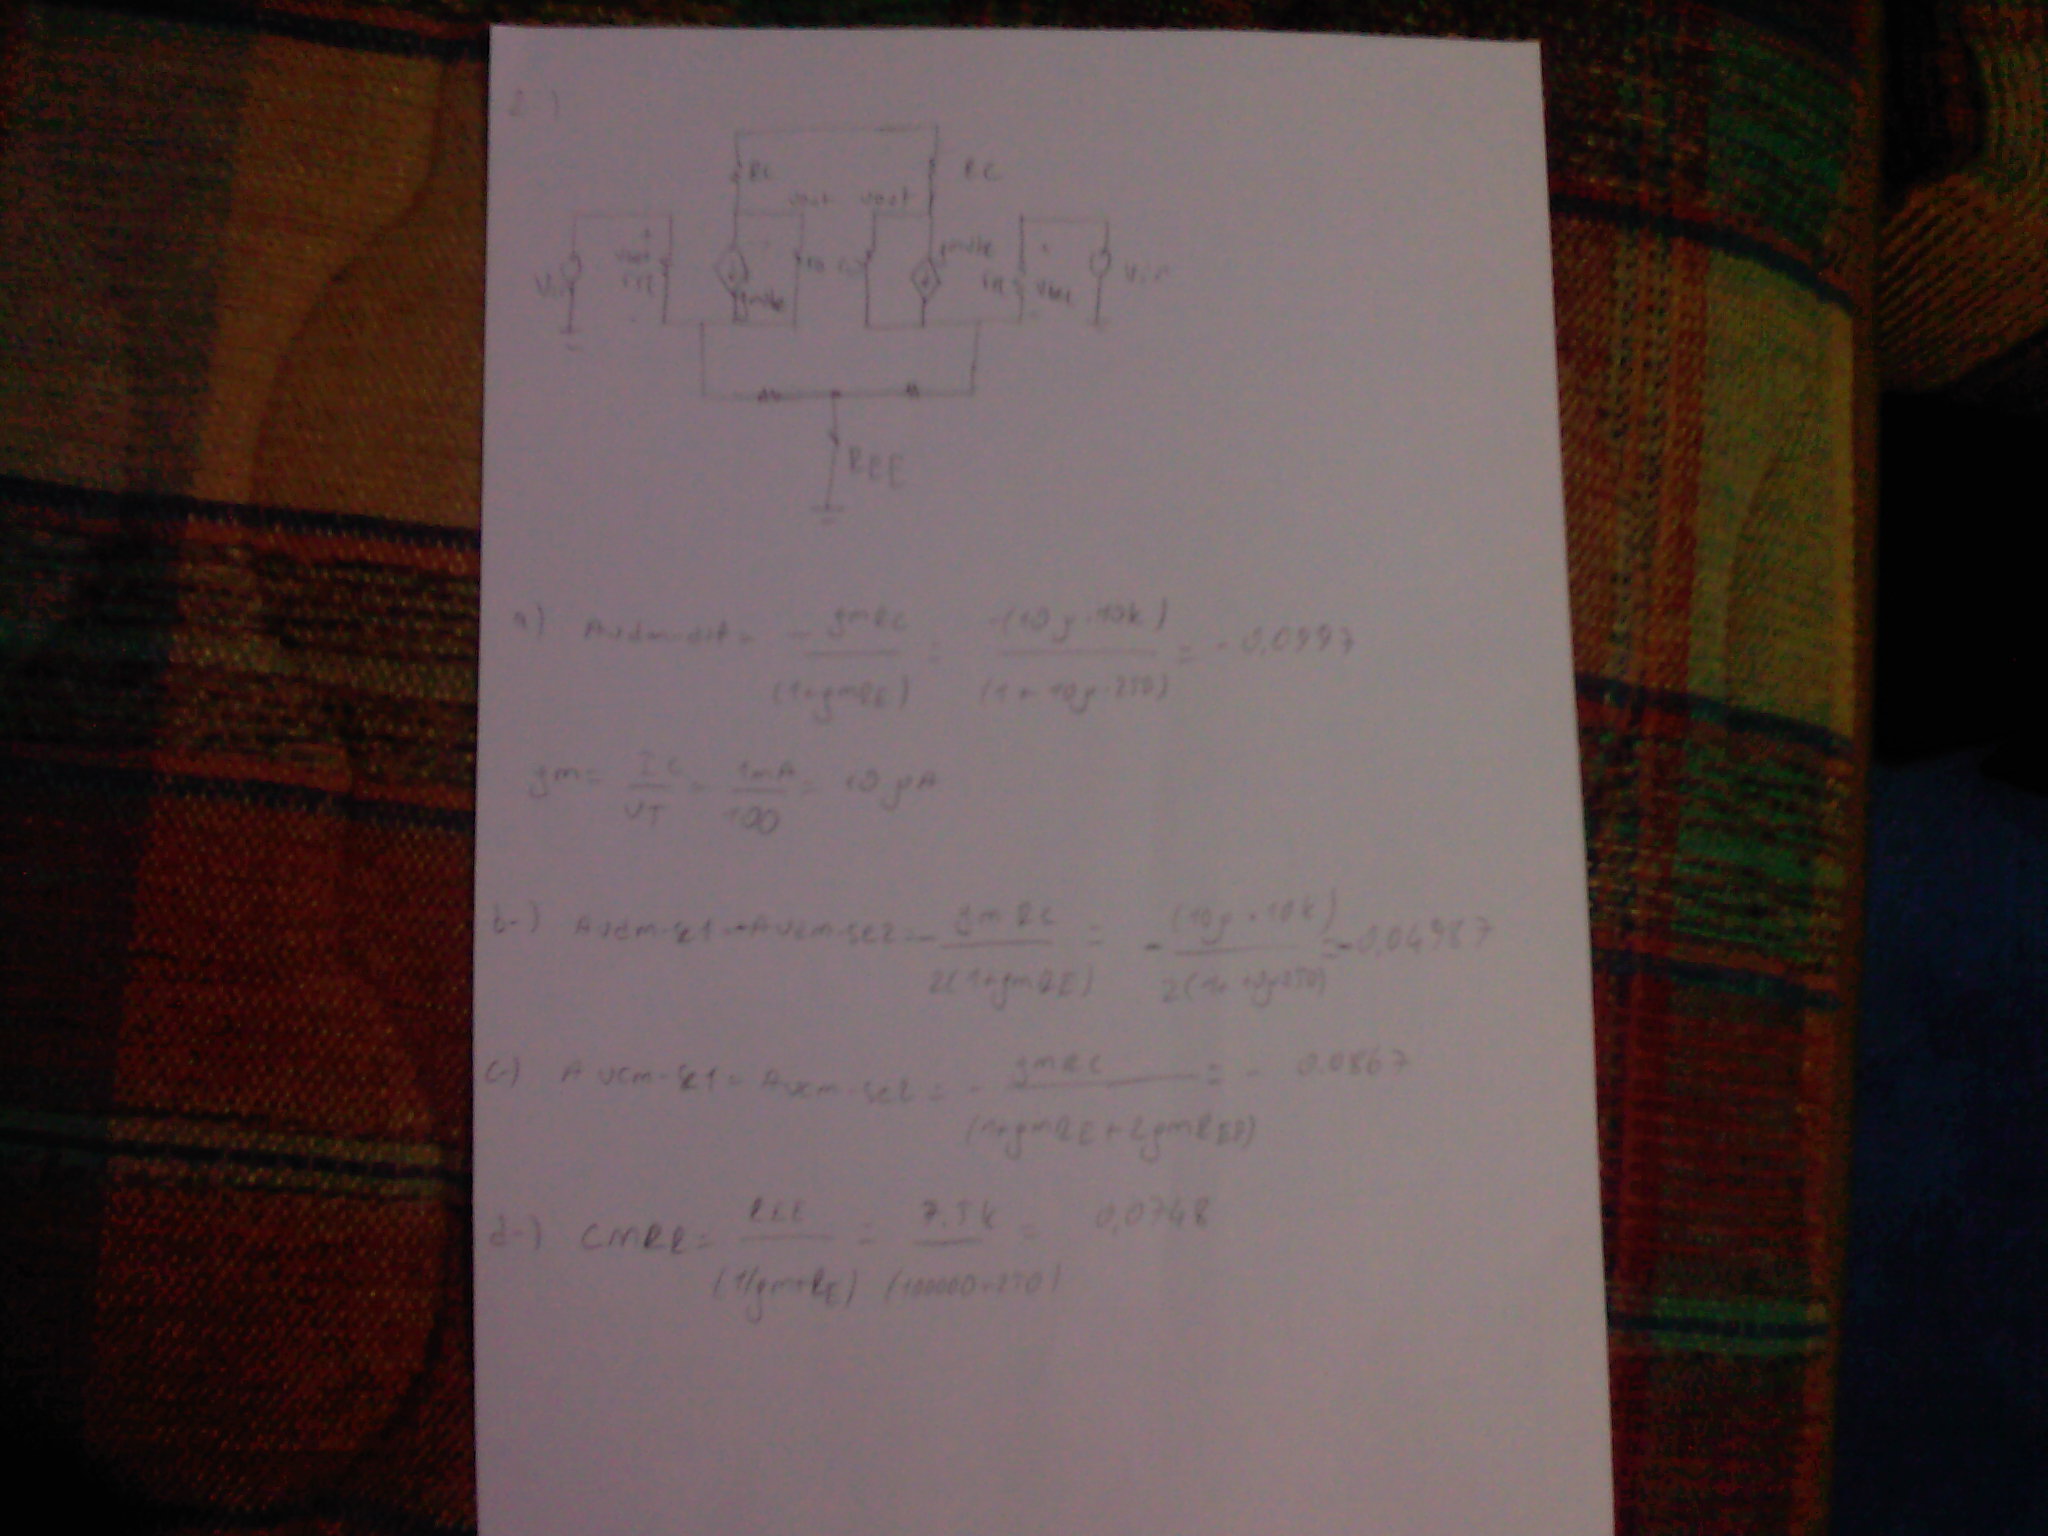 2-)
RC RC
vout vout
+ gmvbe +
Vin vbe1 rπ ro ro rπ vbe2 Vin
- gmvbe -
REE
a) Avdm-dif = - gmRC / (1+gmRE) = -(10µ.10k) / (1+10µ.250) = -0,0997
gm = IC / VT = 1mA / 100 = 10µA
b-) Avdm-se1 = -Avdm-se2 = - gmRC / 2(1+gmRE) = - (10µ.10k) / 2(1+10µ250) = -0,04987
c-) Avcm-se1 = Avcm-se2 = - gmRC / (1+gmRE+2gmREE) = - 0.0867
d-) CMRR = REE / (1/gm+RE) = 7.5k / (100000+250) = 0,0748